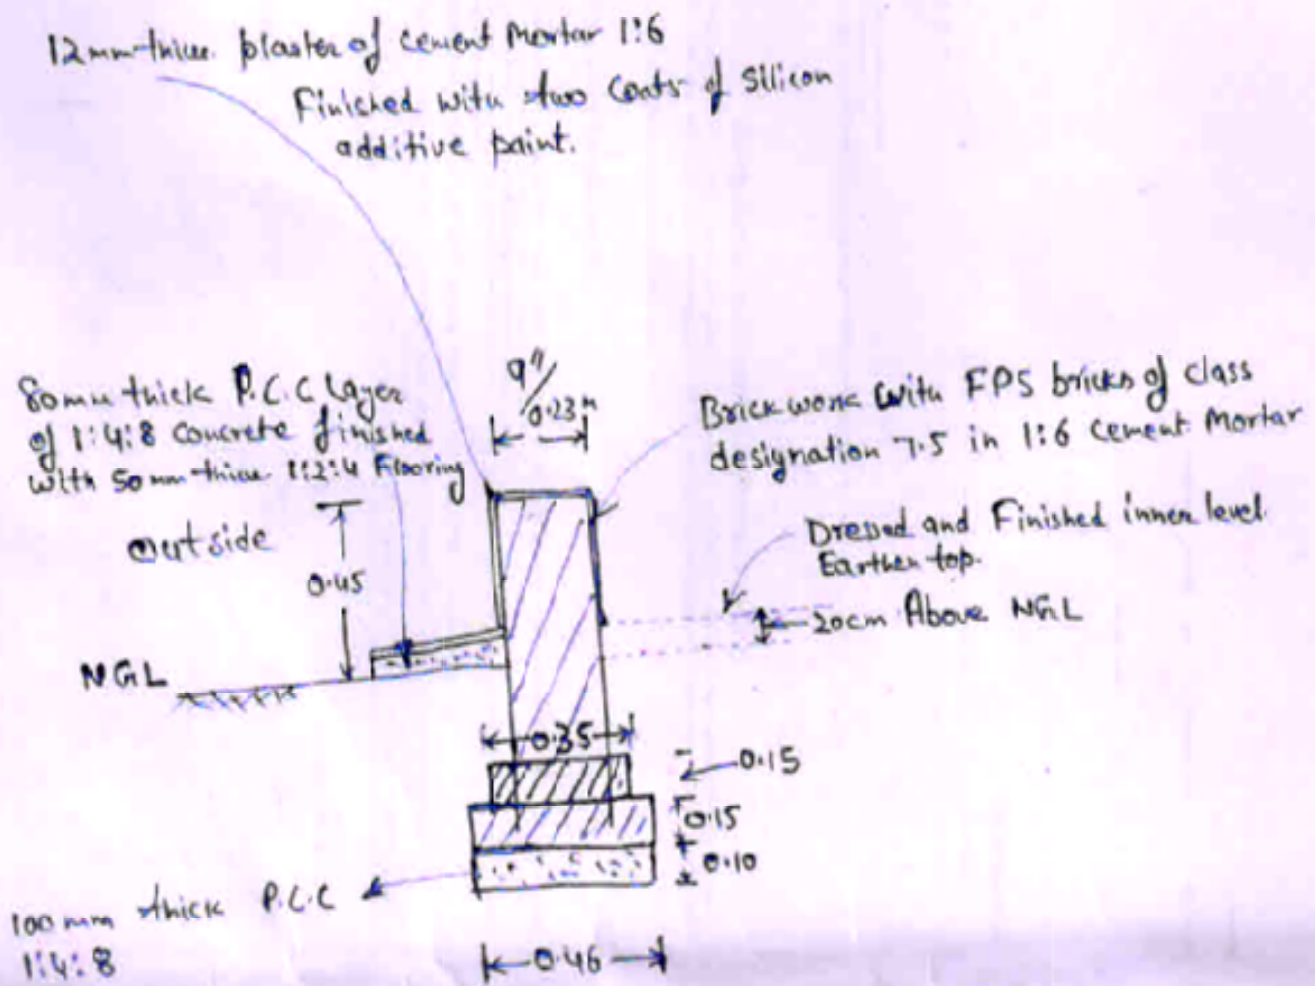 12mm thick plaster of cement Mortar 1:6
Finished with two Coats of Silicon
additive paint.
9"/
0.23m
80mm thick P.C.C Layer
of 1:4:8 Concrete finished
with 50mm thick 1:2:4 Flooring
Brick work with FPS bricks of class
designation 7.5 in 1:6 Cement Mortar
outside
Dressed and Finished inner level.
Earthen top.
0.45
20cm Above NGL
NGL
0.35
0.15
0.15
0.10
100 mm thick P.C.C
1:4:8
0.46